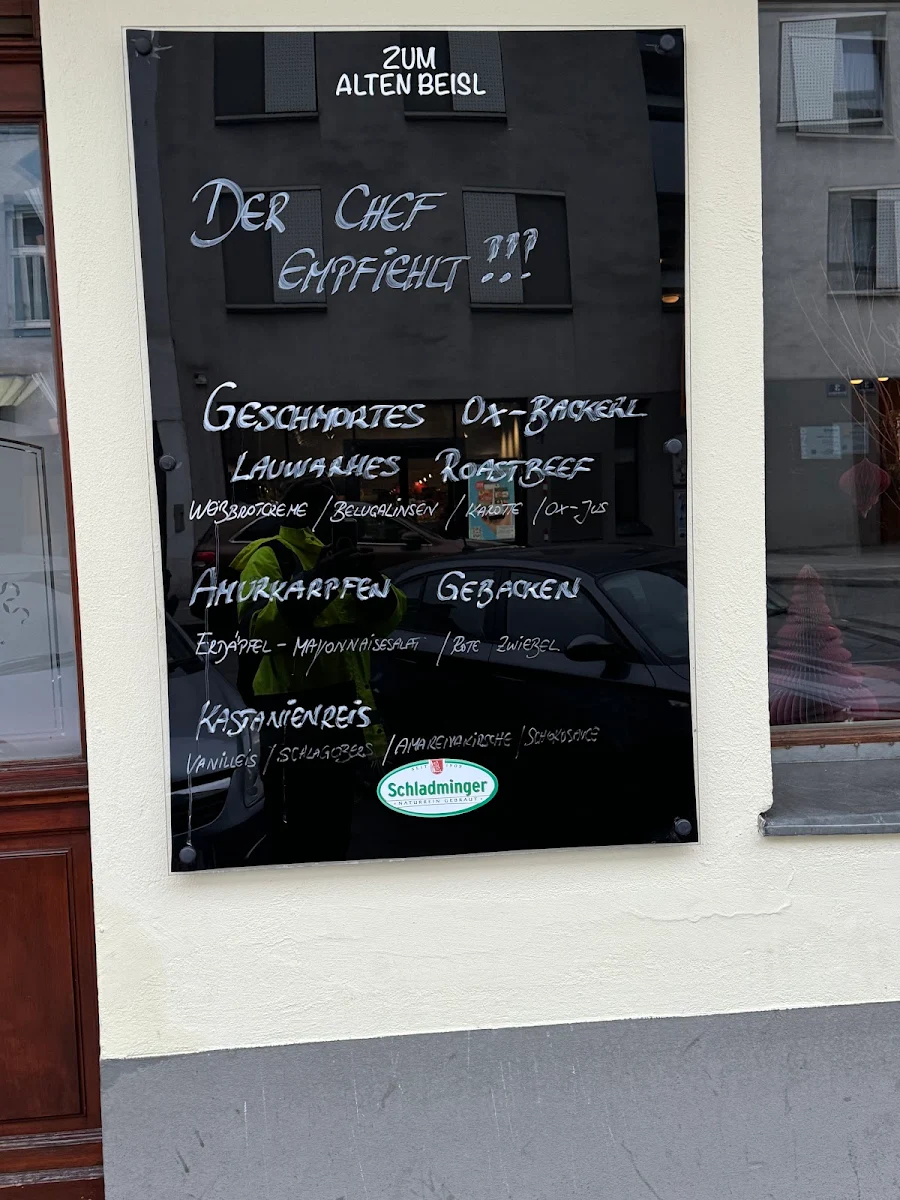 ZUM
ALTEN BEISL
DER CHEF
EMPFIEHLT !!!
GESCHMORTES OX-BACKERL
LAUWARMES ROASTBEEF
WEIßBROTCREME / BELUGALINSEN / KAROTTE / OX-JUS
AMURKARPFEN GEBACKEN
ERDÄPFEL-MAYONNAISESALAT / ROTE ZWIEBEL
KASTANIENREIS
VANILLEIS / SCHLAGOBERS / AMARENAKIRSCHE / SCHOKOSAUCE
SEIT 1909
Schladminger
NATURREIN GEBRAUT